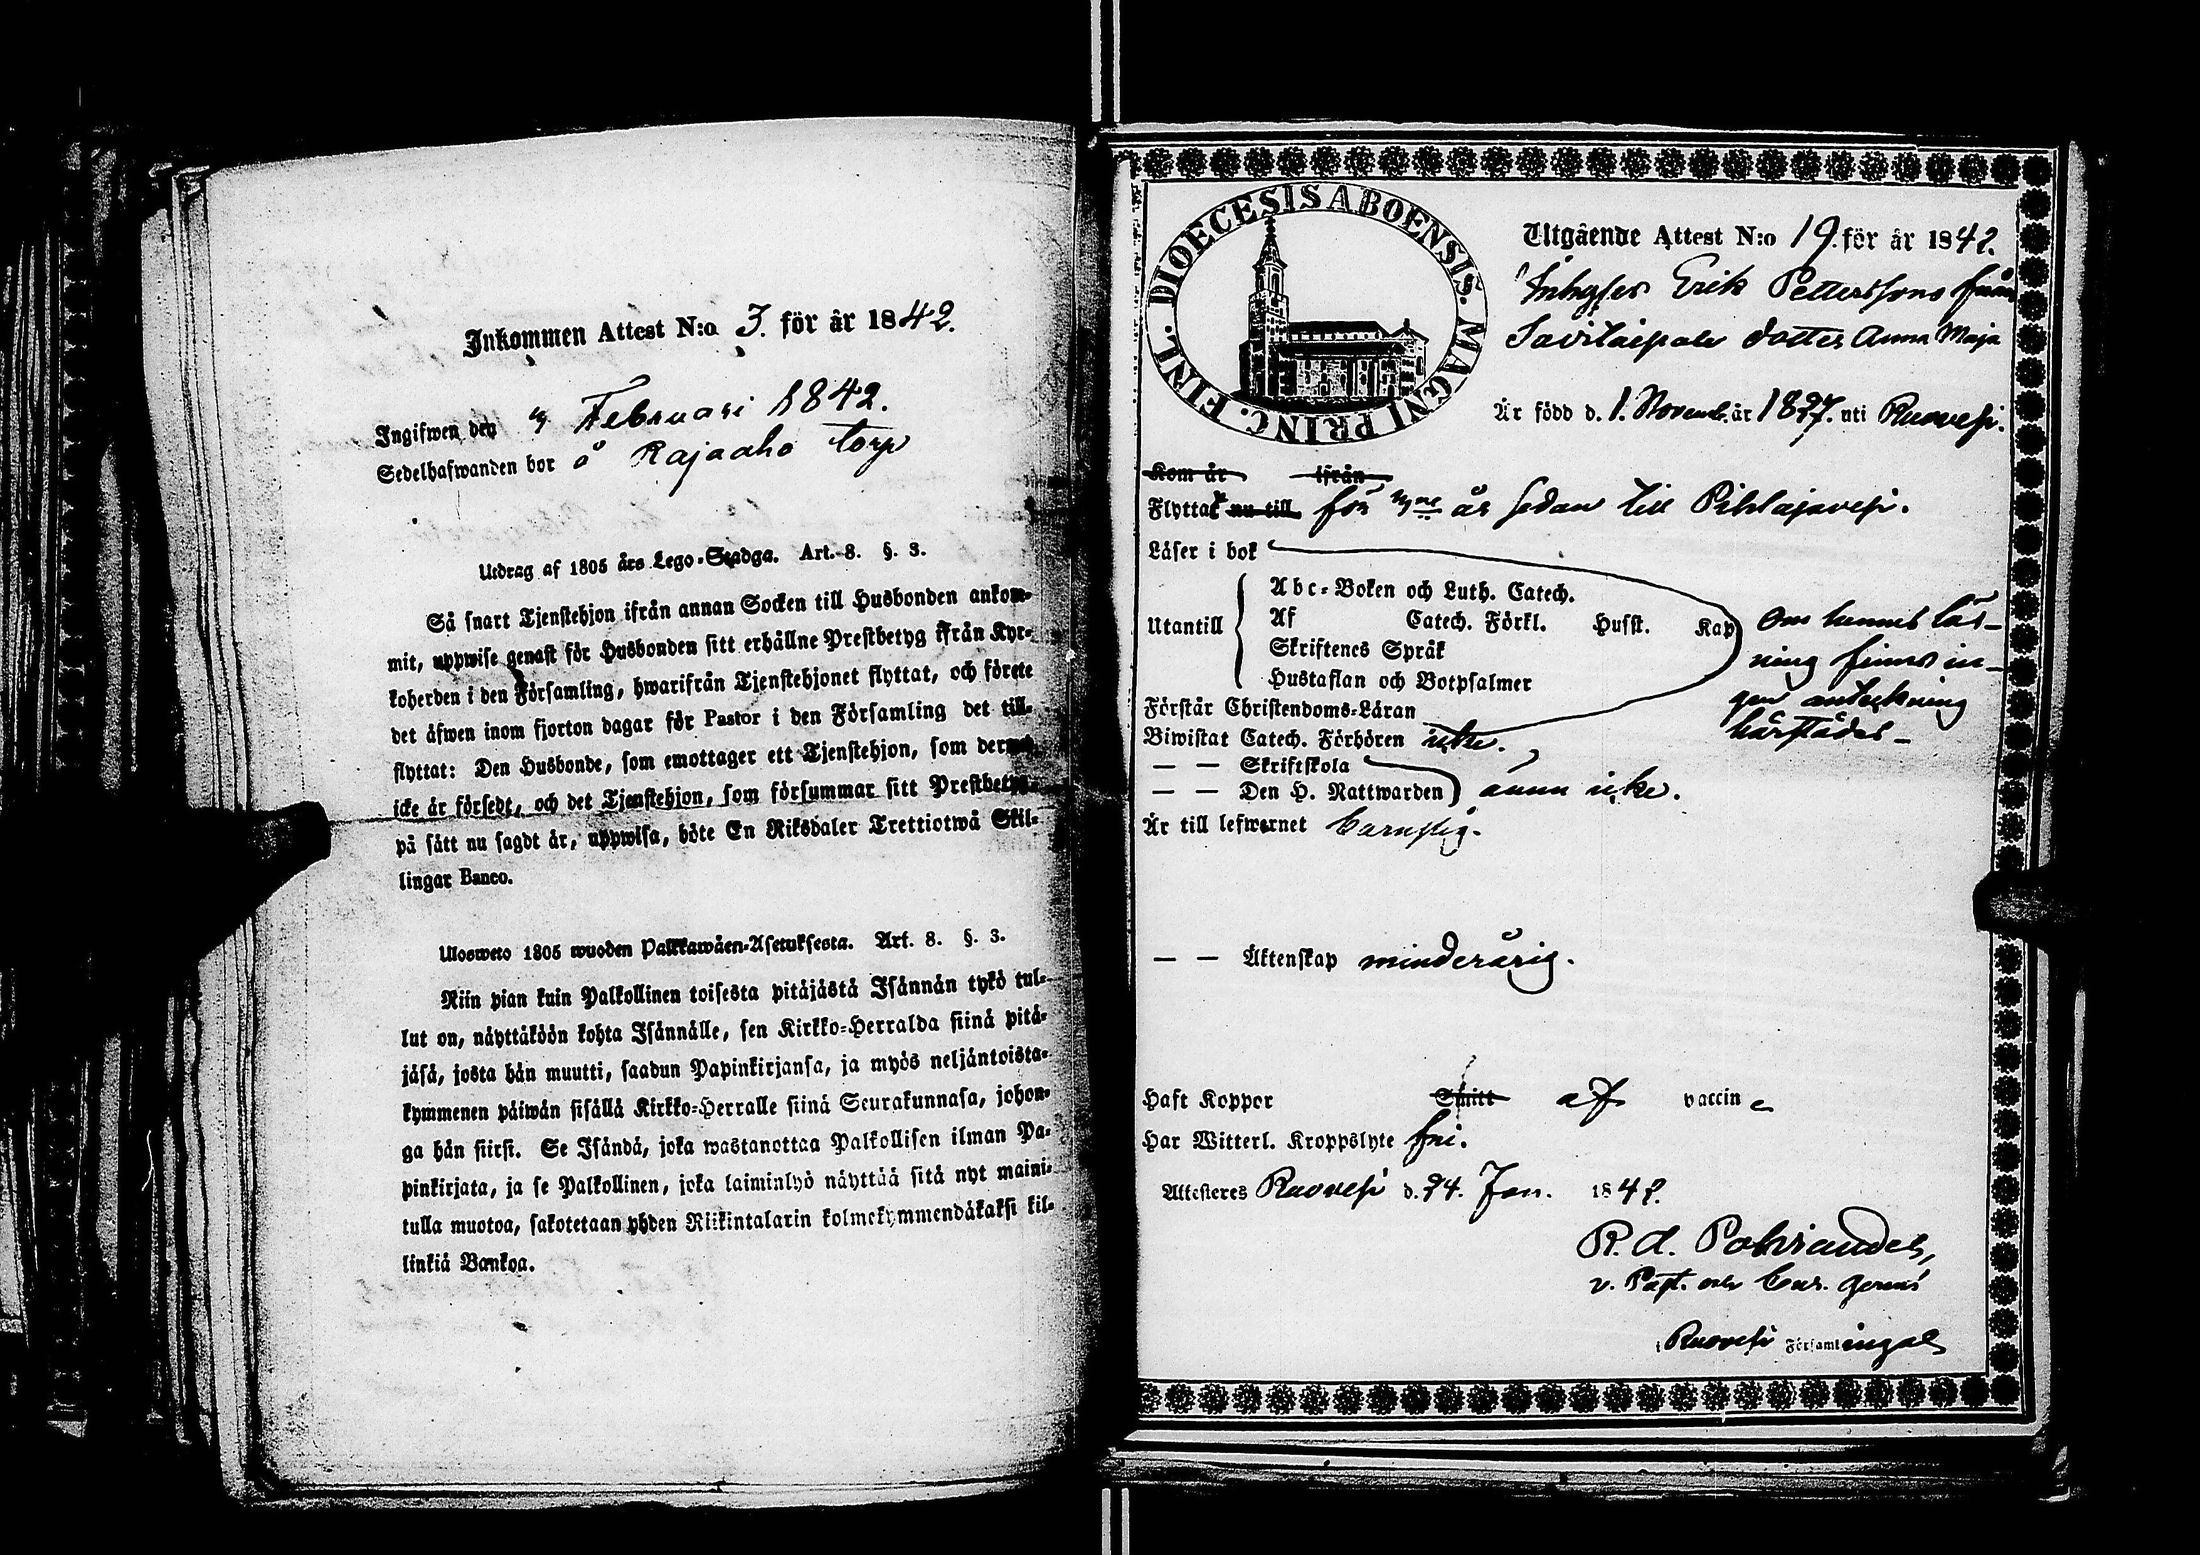 Inkommen Attest N:o 3. för år 1842.
Ingifwen den Februari 1842.
Sedelhafwanden bor å Rajaaho torp
Utdrag af 1805 års Lego-Stadga. Art. 8. §. 3.
Så snart Tjenstehjon ifrån annan Socken till Husbonden ankom-
mit, uppwise genast för Husbonden sitt erhållne Prestbetyg ifrån Kyr-
koherden i den Församling, hwarifrån Tjenstehjonet flyttat, och förete
det äfwen inom fjorton dagar för Pastor i den Församling det till-
flyttat: Den Husbonde, som emottager ett Tjenstehjon, som dermed
icke är försedt, och det Tjenstehjon, som försummar sitt Prestbetyg,
på sätt nu sagdt är, uppwisa, böte En Riksdaler Trettiotwå Skil-
lingar Banco.
Ulosweto 1805 wuoden Palkkawäen-Asetuksesta. Art. 8. §. 3.
Niin pian kuin Palkollinen toisesta pitäjästä Isännän tykö tul-
lut on, näyttäköön kohta Isännälle, sen Kirkko-Herralda siinä pitä-
jäsä, josta hän muutti, saadun Papinkirjansa, ja myös neljäntoista-
kymmenen päiwän sisällä Kirkko-Herralle siinä Seurakunnasa, johon-
ga hän siirsi. Se Isändä, joka wastanottaa Palkollisen ilman Pa-
pinkirjata, ja se Palkollinen, joka laiminlyö näyttää sitä nyt maini-
tulla muotoa, sakotetaan yhden Riikintalarin kolmekymmendäkaksi kil-
linkiä Bankoa.
DIOECESIS ABOENSIS. MAGNI PRINC. FINL.
Utgående Attest N:o 19. för år 1842.
Inhyses Erik Petterssons från
Savilaipale dotter Anna Maja
Är född d. 1. Novemb. år 1827. uti Ruovesi.
Kom år ifrån
Flyttat nu till för år sedan till Pihlajavesi.
Läser i bok
Utantill
Abc-Boken och Luth. Catech.
Af Catech. Förkl. Husst. Kap
Skriftenes Språk
Hustaflan och Botpsalmer
Om hennes läs-
ning finnes in-
gen anteckning
härstädes
Förstår Christendoms-Läran
Biwistat Catech. Förhören icke.
— — Skriftskola
— — Den H. Nattwarden ännu icke.
Är till lefwernet barnslig.
— — Äktenskap minderårig.
Haft Koppor Smitt af vaccine
Har Witterl. Kroppslyte fri.
Attesteres Ruovesi d. 24. Jan. 1842.
R. A. Polviander,
v. Past. och Cur. gerens
i Ruovesi Församlingal